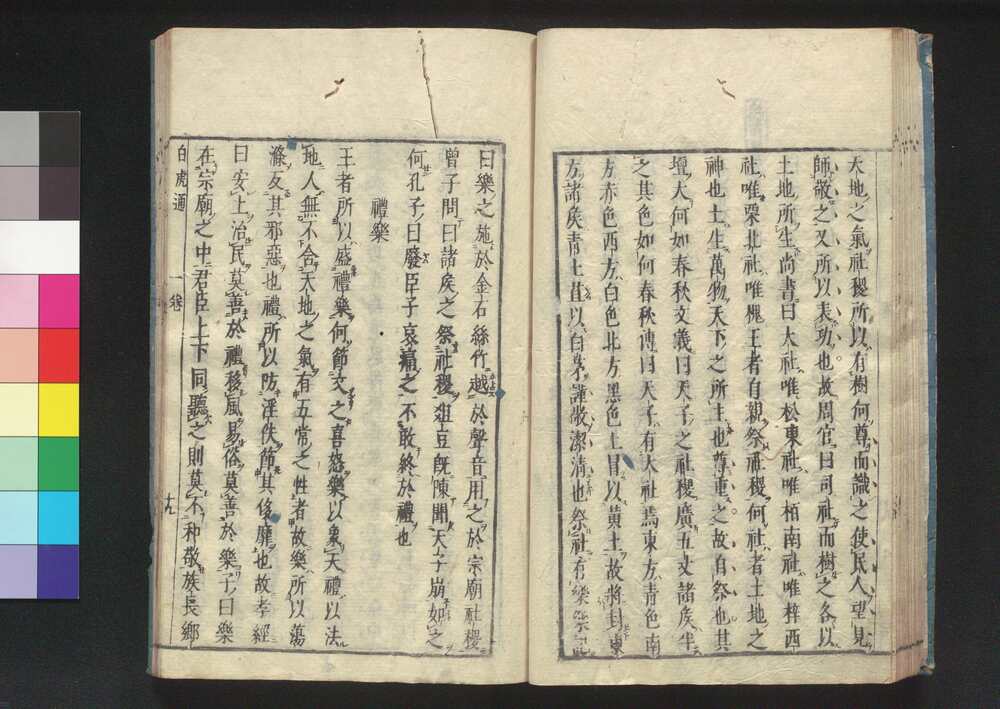 天地之氣社稷所以有樹何尊而識之使民人望見
師敬之又所以表功也故周官曰司社而樹之各以
土地所生尚書曰大社唯松東社唯栢南社唯梓西
社唯栗北社唯槐王者自親祭社稷何社者土地之
神也土生萬物天下之所主也尊重之故自祭也其
壇大何如春秋文義曰天子之社稷廣五丈諸矦半
之其色如何春秋傳曰天子有大社焉東方青色南
方赤色西方白色北方黑色上冒以黄土故將封東
方諸矦青土苴以白茅謹敬潔清也祭社有樂樂記
曰樂之施於金石絲竹越於聲音用之於宗廟社稷
曾子問曰諸矦之祭社稷俎豆旣陳聞天子崩如之
何孔子曰廢臣子哀痛之不敢終於禮也
禮樂
王者所以盛禮樂何節文之喜怒樂以象天禮以法
地人無不含天地之氣有五常之性者故樂所以蕩
滌反其邪惡也禮所以防淫佚節其侈靡也故孝經
曰安上治民莫善於禮移風易俗莫善於樂子曰樂
在宗廟之中君臣上下同聽之則莫不和敬族長鄉
白虎通
一卷
十九